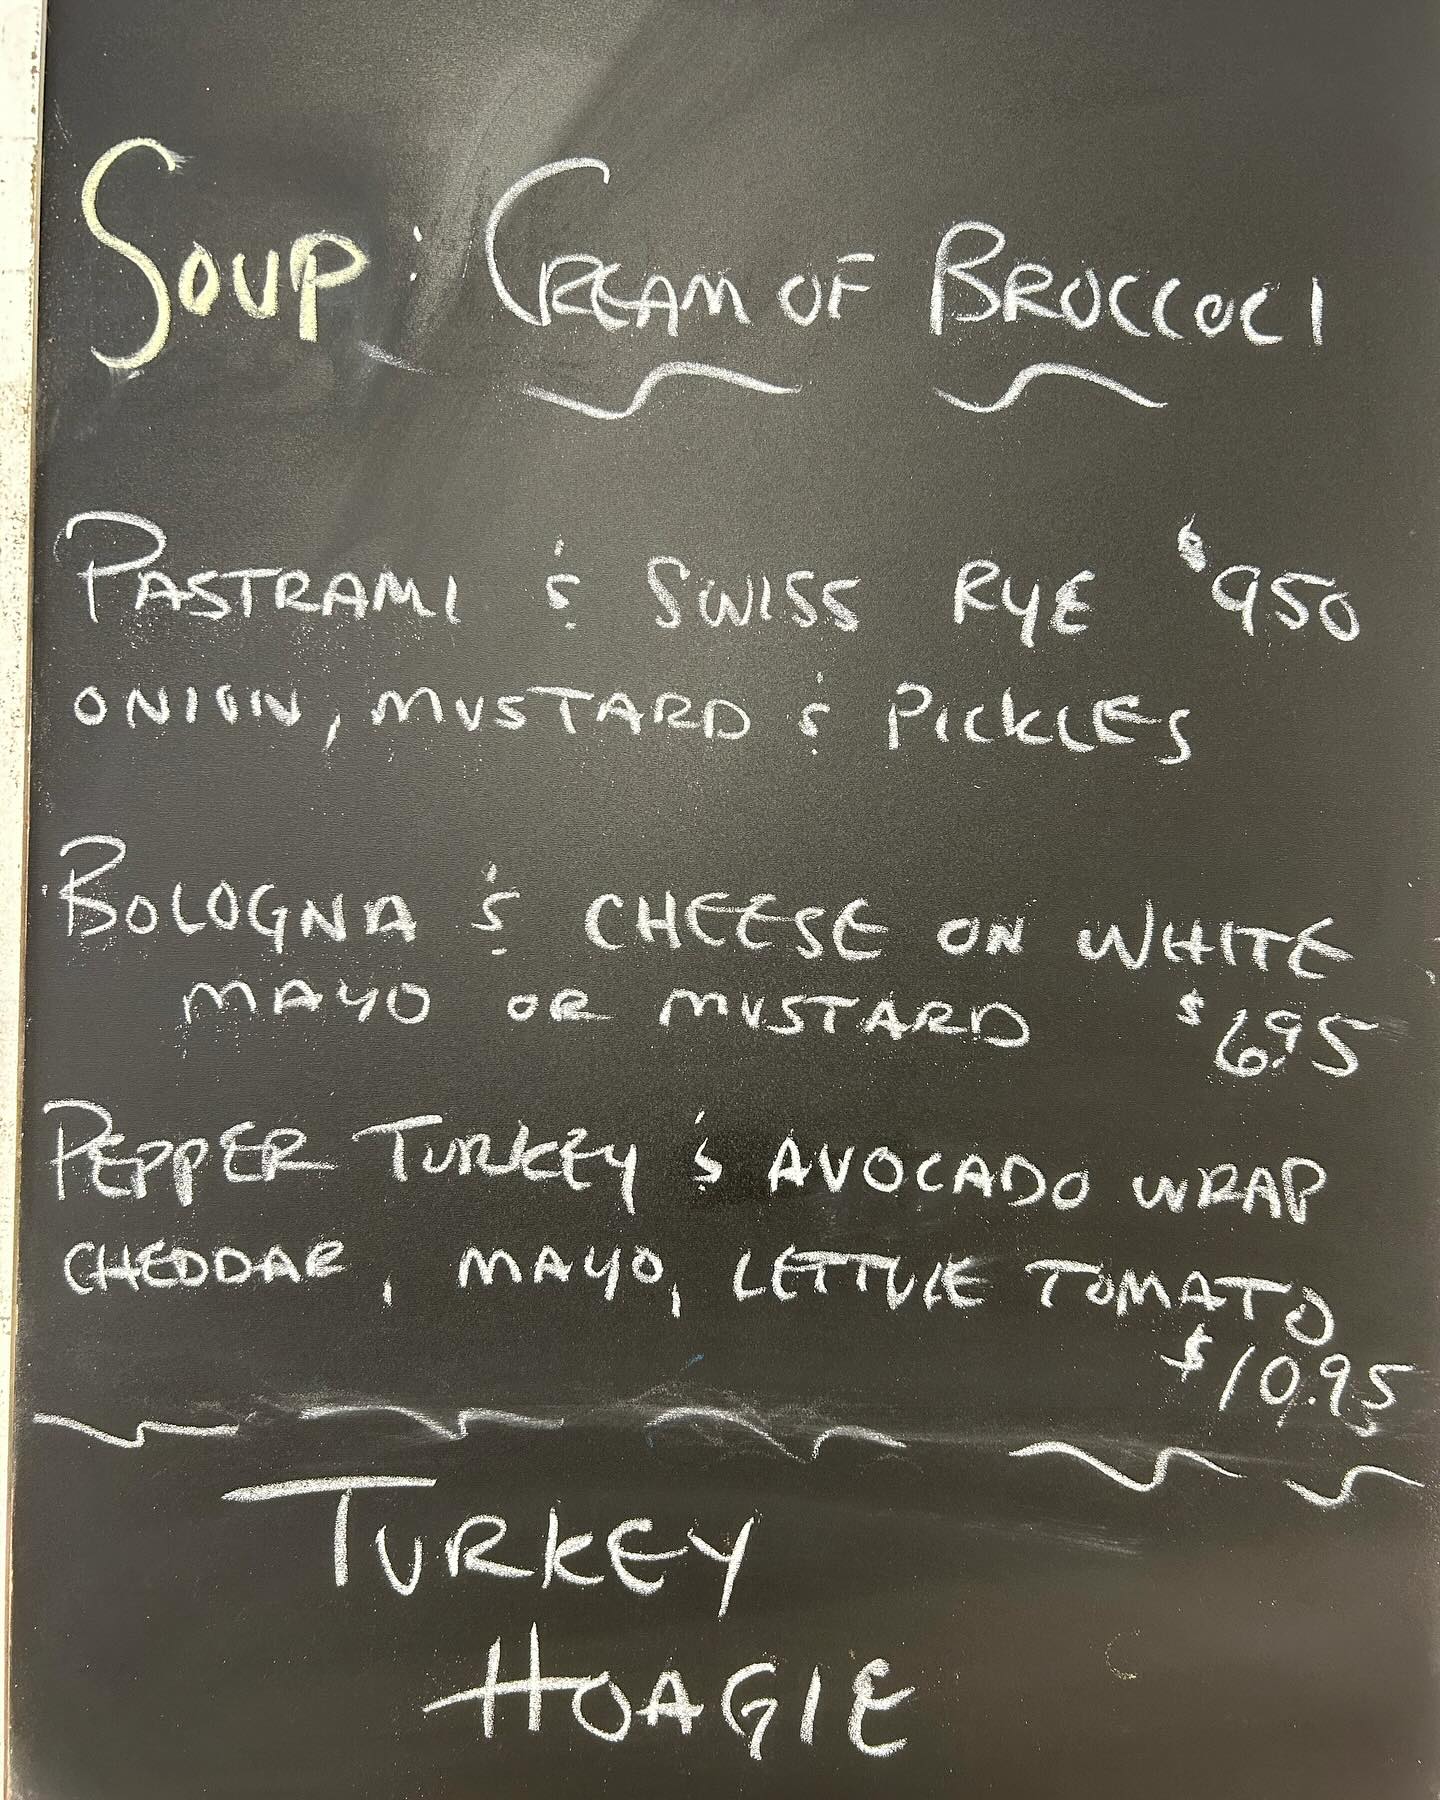 SOUP: CREAM OF BROCCOLI
PASTRAMI & SWISS RYE $950
ONION, MUSTARD & PICKLES
BOLOGNA & CHEESE ON WHITE
MAYO OR MUSTARD $6.95
PEPPER TURKEY & AVOCADO WRAP
CHEDDAR, MAYO, LETTUCE TOMATO
$10.95
TURKEY
HOAGIE